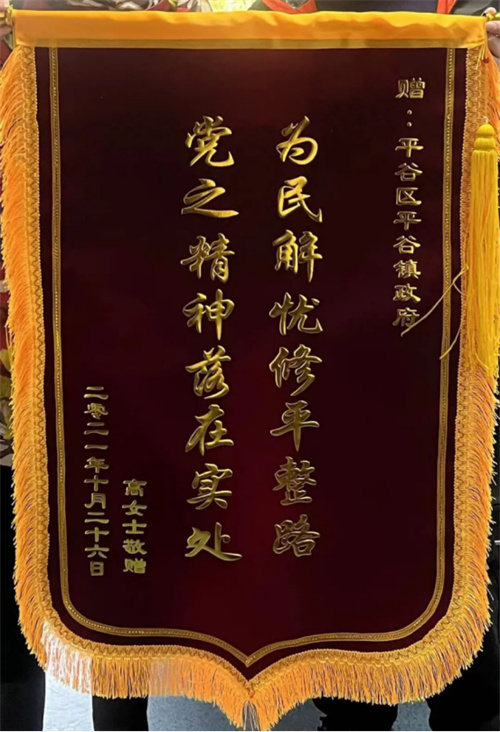 赠：平谷区平谷镇政府
为民解忧修平整路
党之精神落在实处
高女士敬赠
二零二一年十月二十六日